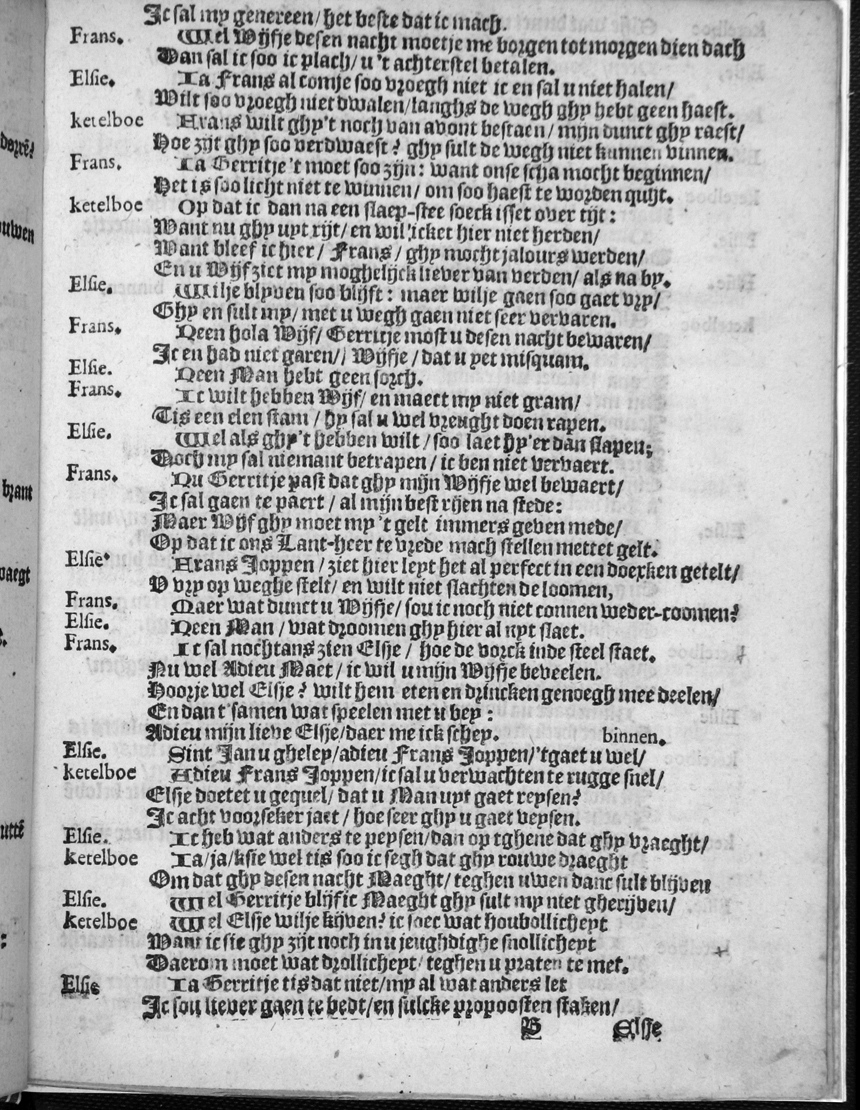 Ic sal my genereen/ het beste dat ic mach.
Frans. Wel Wijfje desen nacht moetje me borgen tot morgen dien dach
Dan sal ic soo ic plach/ u 't achterstel betalen.
Elsie. Ia Frans al comje soo vroegh niet ic en sal u niet halen/
Wilt soo vroegh niet dwalen/ langhs de wegh ghy hebt geen haest.
ketelboe Frans wilt ghy't noch van avont bestaen/ mijn dunct ghy raest/
Hoe zijt ghy soo verdwaest? ghy sult de wegh niet kunnen vinnen.
Frans. Ia Gerritje 't moet soo zijn: want onse scha mocht beginnen/
Het is soo licht niet te winnen/ om soo haest te worden quijt.
ketelboe Op dat ic dan na een slaep-stee soeck isset over tijt:
Want nu ghy uyt rijt/ en wil icket hier niet herden/
Want bleef ic hier/ Frans/ ghy mocht jalours werden/
En u Wijf ziet my moghelijck liever van verden/ als na by.
Elsie. Wilje blyven soo blijft: maer wilje gaen soo gaet vry/
Ghy en sult my/ met u wegh gaen niet seer vervaren.
Frans. Neen hola Wijf/ Gerritje most u desen nacht bewaren/
Ic en had niet garen/ Wijfje/ dat u yet misquam.
Elsie. Neen Man hebt geen sorch.
Frans. Ic wilt hebben Wijf/ en maect my niet gram/
Tis een elen stam/ hy sal u wel vreught doen rapen.
Elsie. Wel als ghy't hebben wilt/ soo laet hy'er dan slapen;
Doch my sal niemant betrapen/ ic ben niet vervaert.
Frans. Nu Gerritje past dat ghy mijn Wijfje wel bewaert/
Ic sal gaen te paert/ al mijn best rijen na stede:
Maer Wijf ghy moet my 't gelt immers geven mede/
Op dat ic ons Lant-heer te vrede mach stellen mettet gelt.
Elsie. Frans Joppen/ ziet hier leyt het al perfect in een doexken getelt/
U vry op weghe stelt/ en wilt niet slachten de loomen,
Frans. Maer wat dunct u Wijfje/ sou ic noch niet connen weder-coomen?
Elsie. Neen Man/ wat droomen ghy hier al uyt slaet.
Frans. Ic sal nochtans zien Elsje/ hoe de vorck inde steel staet.
Nu wel Adieu Maet/ ic wil u mijn Wijfje beveelen.
Hoorje wel Elsje? wilt hem eten en drincken genoegh mee deelen/
En dan t'samen wat speelen met u bey:
Adieu mijn lieve Elsje/ daer me ick schey. binnen.
Elsie. Sint Jan u gheley/ adieu Frans Joppen/ 'tgaet u wel/
ketelboe Adieu Frans Joppen/ ic sal u verwachten te rugge snel/
Elsje doetet u gequel/ dat u Man uyt gaet reysen?
Ic acht voorseker jaet/ hoe seer ghy u gaet veysen.
Elsie. Ic heb wat anders te peysen/ dan op tghene dat ghy vraeght/
ketelboe Ia/ ja/ ksie wel tis soo ic segh dat ghy rouwe draeght
Om dat ghy desen nacht Maeght/ teghen uwen danc sult blijven
Elsie. Wel Gerritje blijf ic Maeght ghy sult my niet gherijven/
ketelboe Wel Elsje wilje kijven? ic soec wat houbollicheyt
Want ic sie ghy zijt noch in u jeughdighe snollicheyt
Daerom moet wat drollicheyt/ teghen u praten te met.
Elsie Ia Gerritje tis dat niet/ my al wat anders let
Ic sou liever gaen te bedt/ en sulcke propoosten staken/
B Elsje